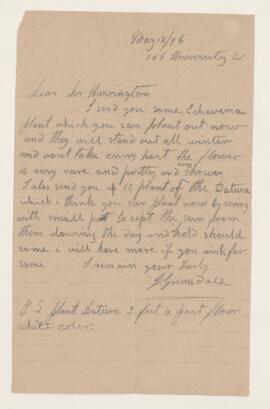 May 18/96
166 University St
Dear Dr Harrington
I send you some Echeveria
plant which you can plant out now
and they will stand out all winter
and wont take enny hurt the flower
is very rare and pritty and showey
I also send you 12 plant of the Datura
which i thinke you can plant now by cuving
with small pot to cept the sun from
them dowring the day and hold should
came i will have more if you wich for
some I remain your Truly
J Grimsdale
P S plant Datura 3 feet a part flower
white color.